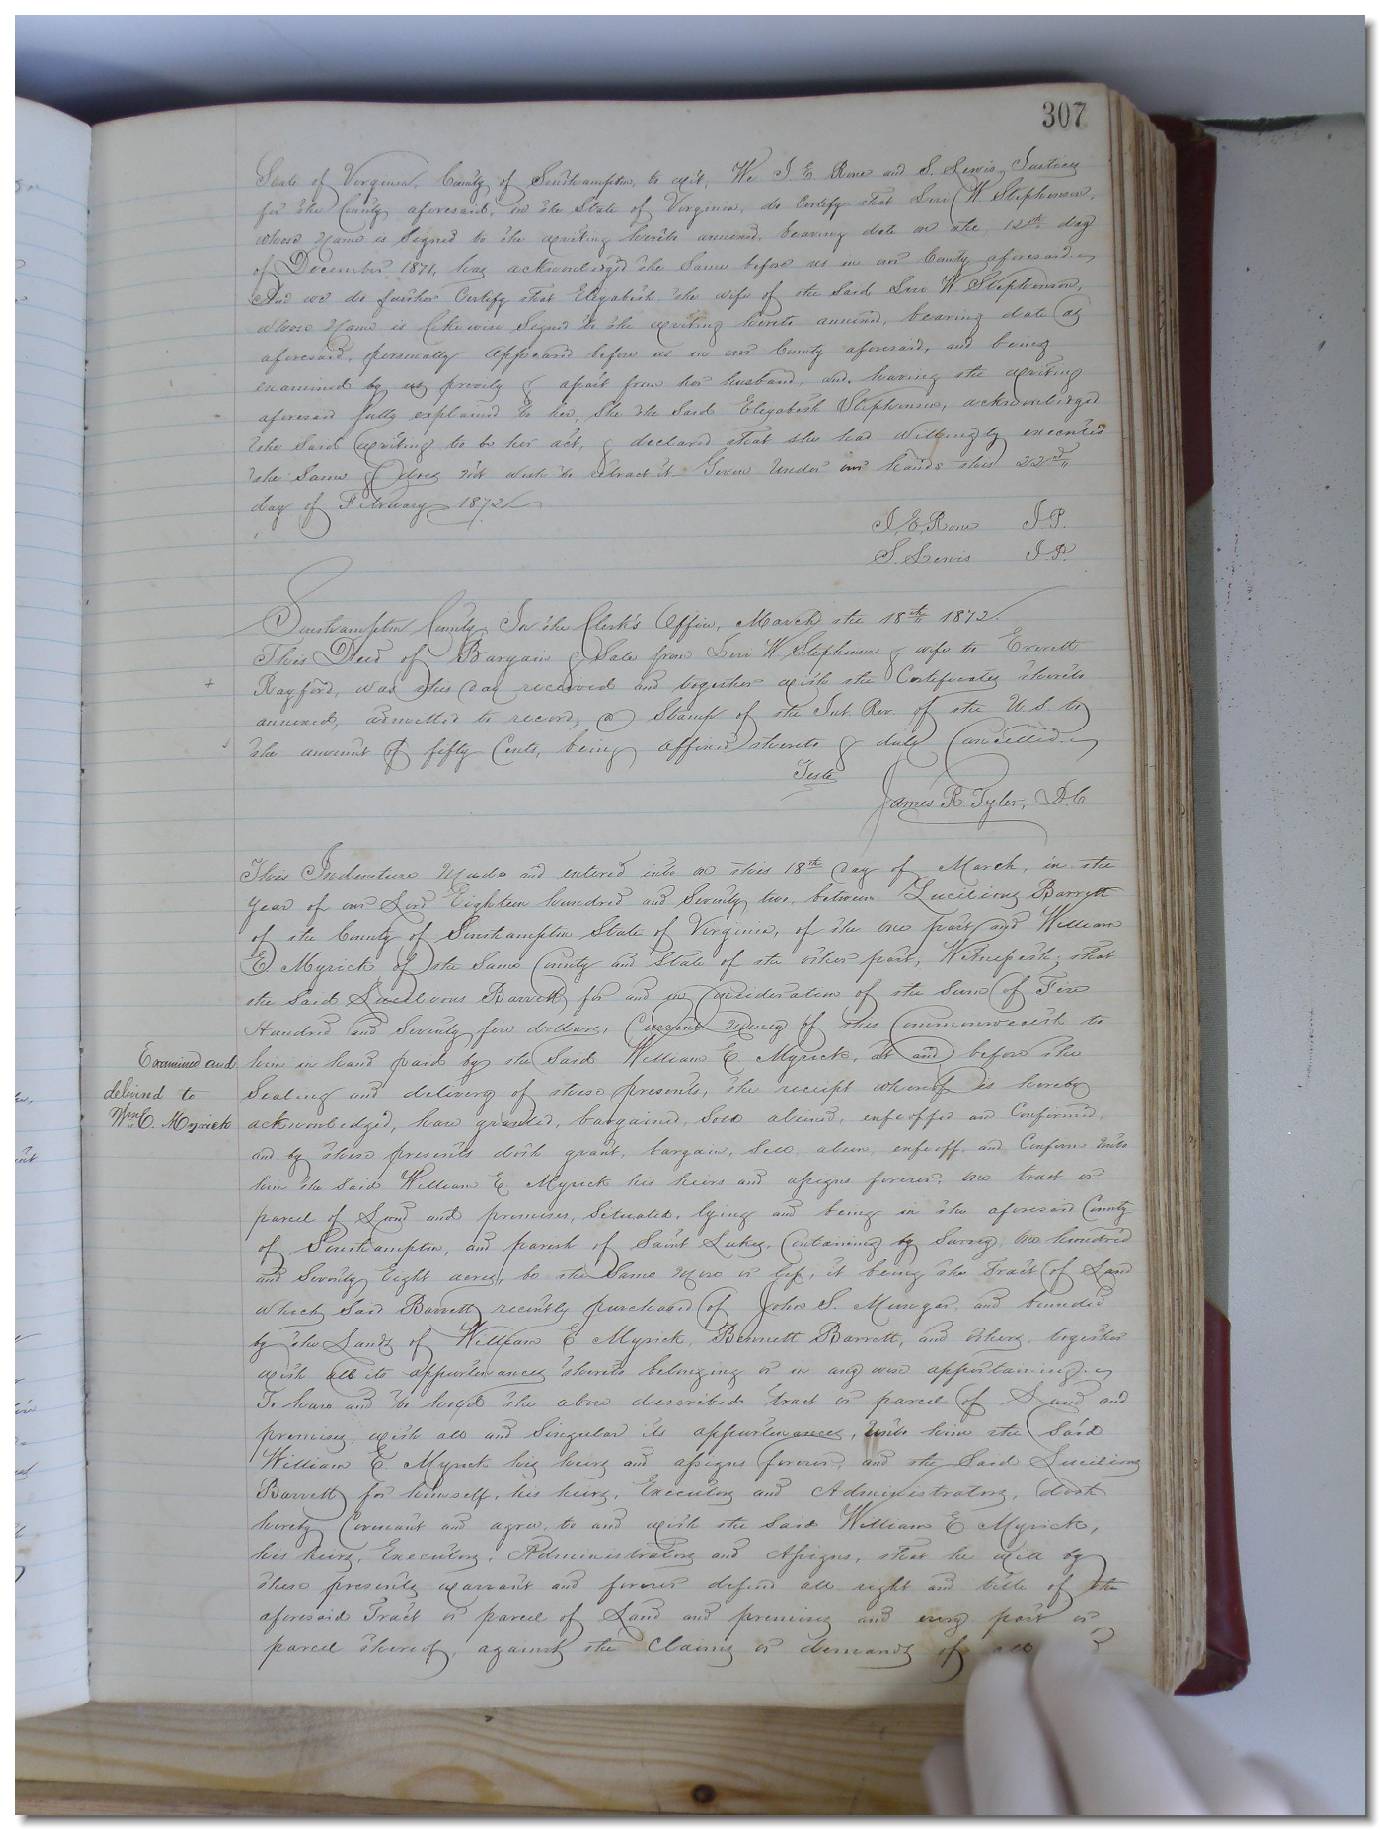 307
State of Virginia, County of Southampton, to wit, We J. E. Rone and S. Lewis, Justices
for the County aforesaid, in the State of Virginia, do Certify that Levi W Stephenson,
whose Name is Signed to the writing hereto annexed, bearing date on the 12th day
of December 1871, has acknowledged the Same before us in our County aforesaid.
And we do further Certify that Elizabeth the wife of the Said Levi W Stephenson,
whose Name is likewise Signed to the writing hereto annexed, bearing date as
aforesaid, personally appeared before us in our County aforesaid, and being
examined by us privily & apart from her husband, and, having the writing
aforesaid fully explained to her, She the Said Elizabeth Stephenson, acknowledged
the Said writing to be her act, & declared that she had willingly executed
the Same & does not wish to retract it Given Under our hands this 22nd
day of February 1872
J. E. Rone J. P.
S. Lewis J. P.
Southampton County, In the Clerk's Office, March the 18th 1872.
This Deed of Bargain & Sale from Levi W. Stephenson & wife to Everett
Rayford, was this day received and together with the Certificates thereto
annexed, admitted to record, a Stamp of the Int. Rev. of the U.S. to
the amount of fifty Cents, being affixed thereto & duly Cancelled.
Teste
James R. Tyler, D.C
This Indenture Made and entered into on this 18th day of March, in the
Year of our Lord Eighteen hundred and Seventy two, between Lucilious Barrett
of the County of Southampton State of Virginia, of the one part, and William
E Myrick of the Same County and State of the other part, Witnesseth; that
the Said Lucilious Barrett, for and in Consideration of the Sum of Five
Hundred and Seventy five dollars, Current Money of this Commonwealth to
him in hand paid by the Said William E. Myrick, at and before the
Examined and
delivered to
Wm E. Myrick
Sealing and delivery of these presents, the receipt whereof is hereby
acknowledged, have granted, bargained, Sold aliened, enfeoffed and Confirmed,
and by these presents doth grant, bargain, Sell alien, enfeoff, and Confirm Unto
him the Said William E. Myrick his heirs and assigns forever, one tract or
parcel of Land and premises, Situated, lying and being in the aforesaid County
of Southampton, and parish of Saint Lukes, Containing by Survey, One hundred
and Seventy Eight acres, be the Same More or less, it being the Tract of Land
which Said Barrett recently purchased of John S. Musgrave and bounded
by the Lands of William E Myrick, Bennett Barrett, and others, together
with all its appurtenances thereto belonging or in any wise appertaining.
To have and to hold the above described tract or parcel of Land and
premises with all and Singular its appurtenances, Unto him the Said
William E Myrick his heirs and assigns forever, and the Said Lucilious
Barrett, for himself, his heirs, Executors and Administrators, doth
hereby Covenant and agree, to and with the Said William E Myrick,
his heirs, Executors, Administrators and Assigns, that he will by
these presents warrant and forever defend all right and title of the
aforesaid Tract or parcel of Land and premises and every part or
parcel thereof, against the Claims or demands of all